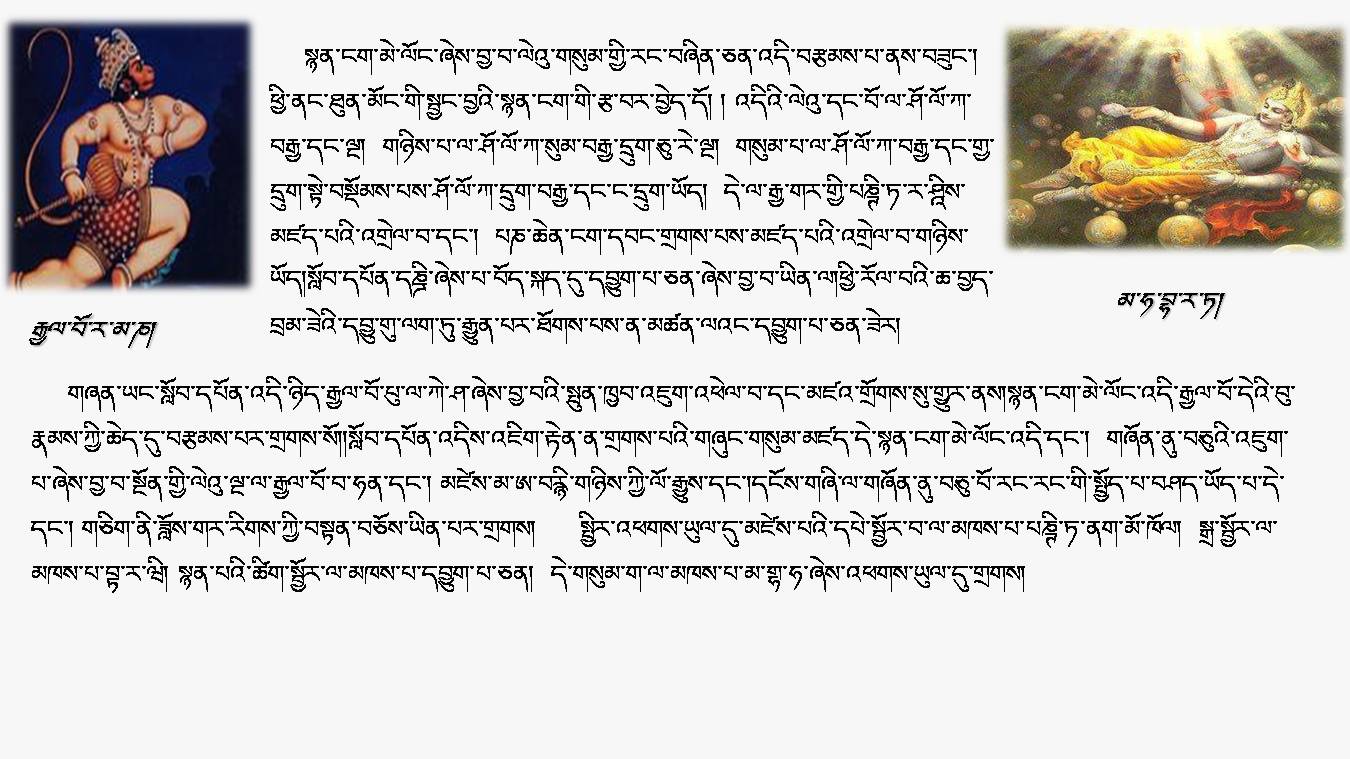 སྙན་ངག་མེ་ལོང་ཞེས་བྱ་བ་ལེའུ་གསུམ་གྱི་རང་བཞིན་ཅན་འདི་བརྩམས་པ་ནས་བཟུང་།
ཕྱི་ནང་ཐུན་མོང་གི་སྦྱང་བྱའི་སྙན་ངག་གི་རྩ་བར་བྱེད་དོ། ། འདིའི་ལེའུ་དང་པོ་ལ་ཤོ་ལོ་ཀ་
བརྒྱ་དང་ལྔ། གཉིས་པ་ལ་ཤོ་ལོ་ཀ་སུམ་བརྒྱ་དྲུག་ཅུ་རེ་ལྔ། གསུམ་པ་ལ་ཤོ་ལོ་ཀ་བརྒྱ་དང་གྱ་
དྲུག་སྟེ་བསྡོམས་པས་ཤོ་ལོ་ཀ་དྲུག་བརྒྱ་དང་ང་དྲུག་ཡོད། དེ་ལ་རྒྱ་གར་གྱི་པཎྜི་ཏ་ར་ཤྲཱིས་
མཛད་པའི་འགྲེལ་བ་དང་། པཎ་ཆེན་ངག་དབང་གྲགས་པས་མཛད་པའི་འགྲེལ་བ་གཉིས་
ཡོད།སློབ་དཔོན་དཎྜི་ཞེས་པ་བོད་སྐད་དུ་དབྱུག་པ་ཅན་ཞེས་བྱ་བ་ཡིན་ལ།ཕྱི་རོལ་བའི་ཆ་བྱད་
བྲམ་ཟེའི་དབྱུ་གུ་ལག་ཏུ་རྒྱུན་པར་ཐོགས་པས་ན་མཚན་ལའང་དབྱུག་པ་ཅན་ཟེར།
རྒྱལ་པོ་ར་མ་ཎ།
མ་ཧ་བྷ་ར་ཏ།
གཞན་ཡང་སློབ་དཔོན་འདི་ཉིད་རྒྱལ་པོ་པུ་ལ་ཀེ་ཤ་ཞེས་བྱ་བའི་སྤུན་ཁྱབ་འཇུག་འཕེལ་བ་དང་མཛའ་གྲོགས་སུ་གྱུར་ནས།སྙན་ངག་མེ་ལོང་འདི་རྒྱལ་པོ་དེའི་བུ་
རྣམས་ཀྱི་ཆེད་དུ་བརྩམས་པར་གྲགས་སོ།།སློབ་དཔོན་འདིས་འཇིག་རྟེན་ན་གྲགས་པའི་གཞུང་གསུམ་མཛད་དེ་སྙན་ངག་མེ་ལོང་འདི་དང་། གཞོན་ནུ་བཅུའི་འཇུག་
པ་ཞེས་བྱ་བ་སྔོན་གྱི་ལེའུ་ལྔ་ལ་རྒྱལ་པོ་བ་ཧན་དང་། མཛེས་མ་ཨ་བནྟི་གཉིས་ཀྱི་ལོ་རྒྱུས་དང་།དངོས་གཞི་ལ་གཞོན་ནུ་བཅུ་པོ་རང་རང་གི་སྤྱོད་པ་བཤད་ཡོད་པ་དེ་
དང་། གཅིག་ནི་ཟློས་གར་རིགས་ཀྱི་བསྟན་བཅོས་ཡིན་པར་གྲགས། སྤྱིར་འཕགས་ཡུལ་དུ་མཛེས་པའི་དཔེ་སྦྱོར་བ་ལ་མཁས་པ་པཎྜི་ཏ་ནག་མོ་ཁོལ། སྒྲ་སྦྱོར་ལ་
མཁས་པ་བྷ་ར་བི། སྙན་པའི་ཚིག་སྦྱོར་ལ་མཁས་པ་དབྱུག་པ་ཅན། དེ་གསུམ་ག་ལ་མཁས་པ་མ་གྷ་ཧ་ཞེས་འཕགས་ཡུལ་དུ་གྲགས།